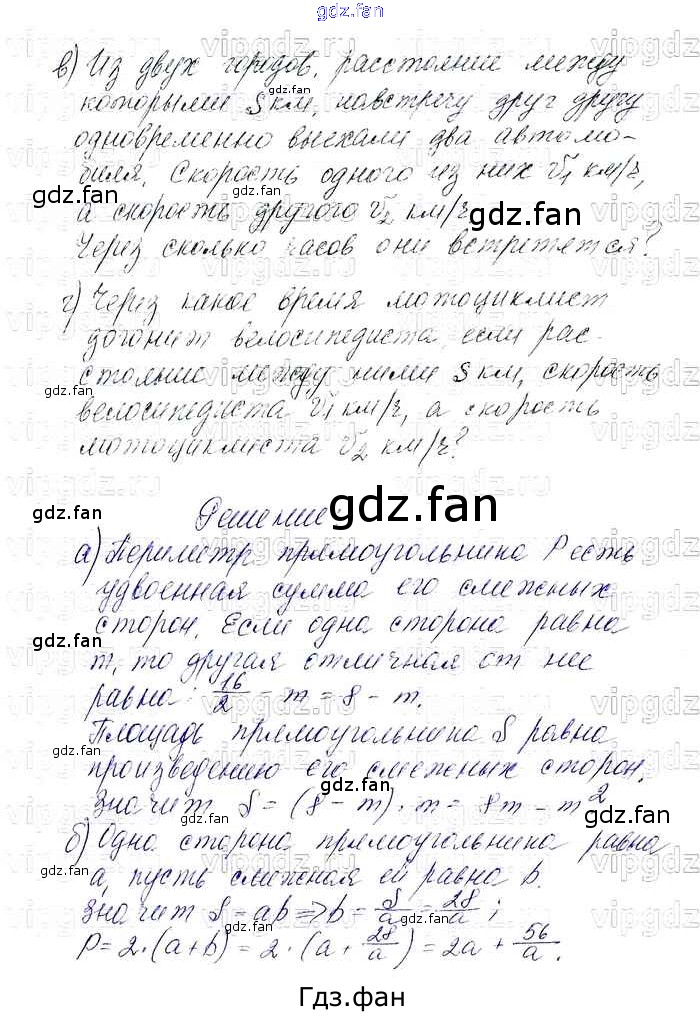 gdz.fan
в) Из двух городов, расстояние между
которыми S км, навстречу друг другу
одновременно выехали два автомо-
биля. Скорость одного из них V₁ км/ч,
а скорость другого V₂ км/ч.
Через сколько часов они встретятся?
г) Через какое время мотоциклист
догонит велосипедиста, если рас-
стояние между ними S км, скорость
велосипедиста V₁ км/ч, а скорость
мотоциклиста V₂ км/ч?
Решение
gdz.fan
а) Периметр прямоугольника P есть
удвоенная сумма его смежных
сторон. Если одна сторона равна
m, то другая отличная от нее
равна: 16/2 − m = 8 − m.
Площадь прямоугольника S равна
произведению его смежных сторон.
Значит S = (8 − m) · m = 8m − m²
б) Одна сторона прямоугольника равна
a, пусть смежная ей равна b.
Значит S = ab => b = S/a = 28/a ;
P = 2·(a+b) = 2·(a + 28/a) = 2a + 56/a.
Гдз.фан